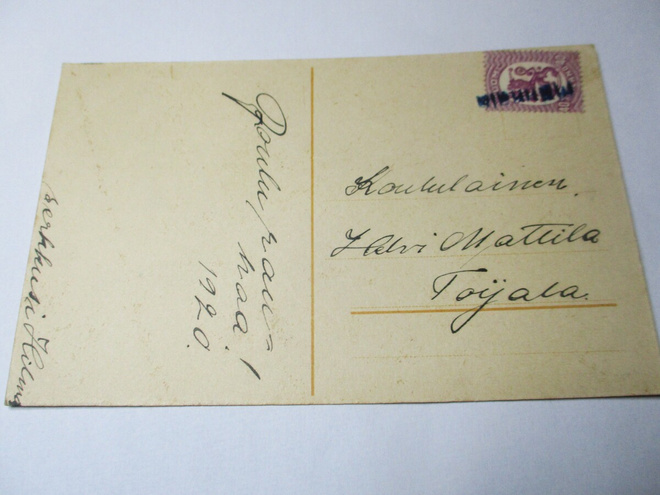 Joulu rau-
haa!
1920.
serkkusi Hilma
Koululainen.
Helvi Mattila
Toijala.